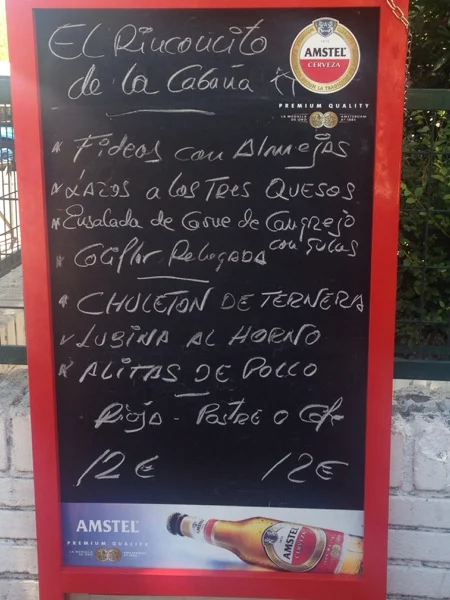 El Rinconcito
de la Cabaña
AMSTEL
CERVEZA
PREMIUM QUALITY
LA MEDALLA DE ORO AMSTERDAM
* Fideos con Almejas
* Lazos a los Tres Quesos
* Ensalada de Carne de Cangrejo
con gulas
* Coliflor Rebozada
* CHULETON DE TERNERA
* LUBINA AL HORNO
* ALITAS DE POLLO
Rioja - Postre o Cafe
12€ 12€
AMSTEL
PREMIUM QUALITY
AMSTEL